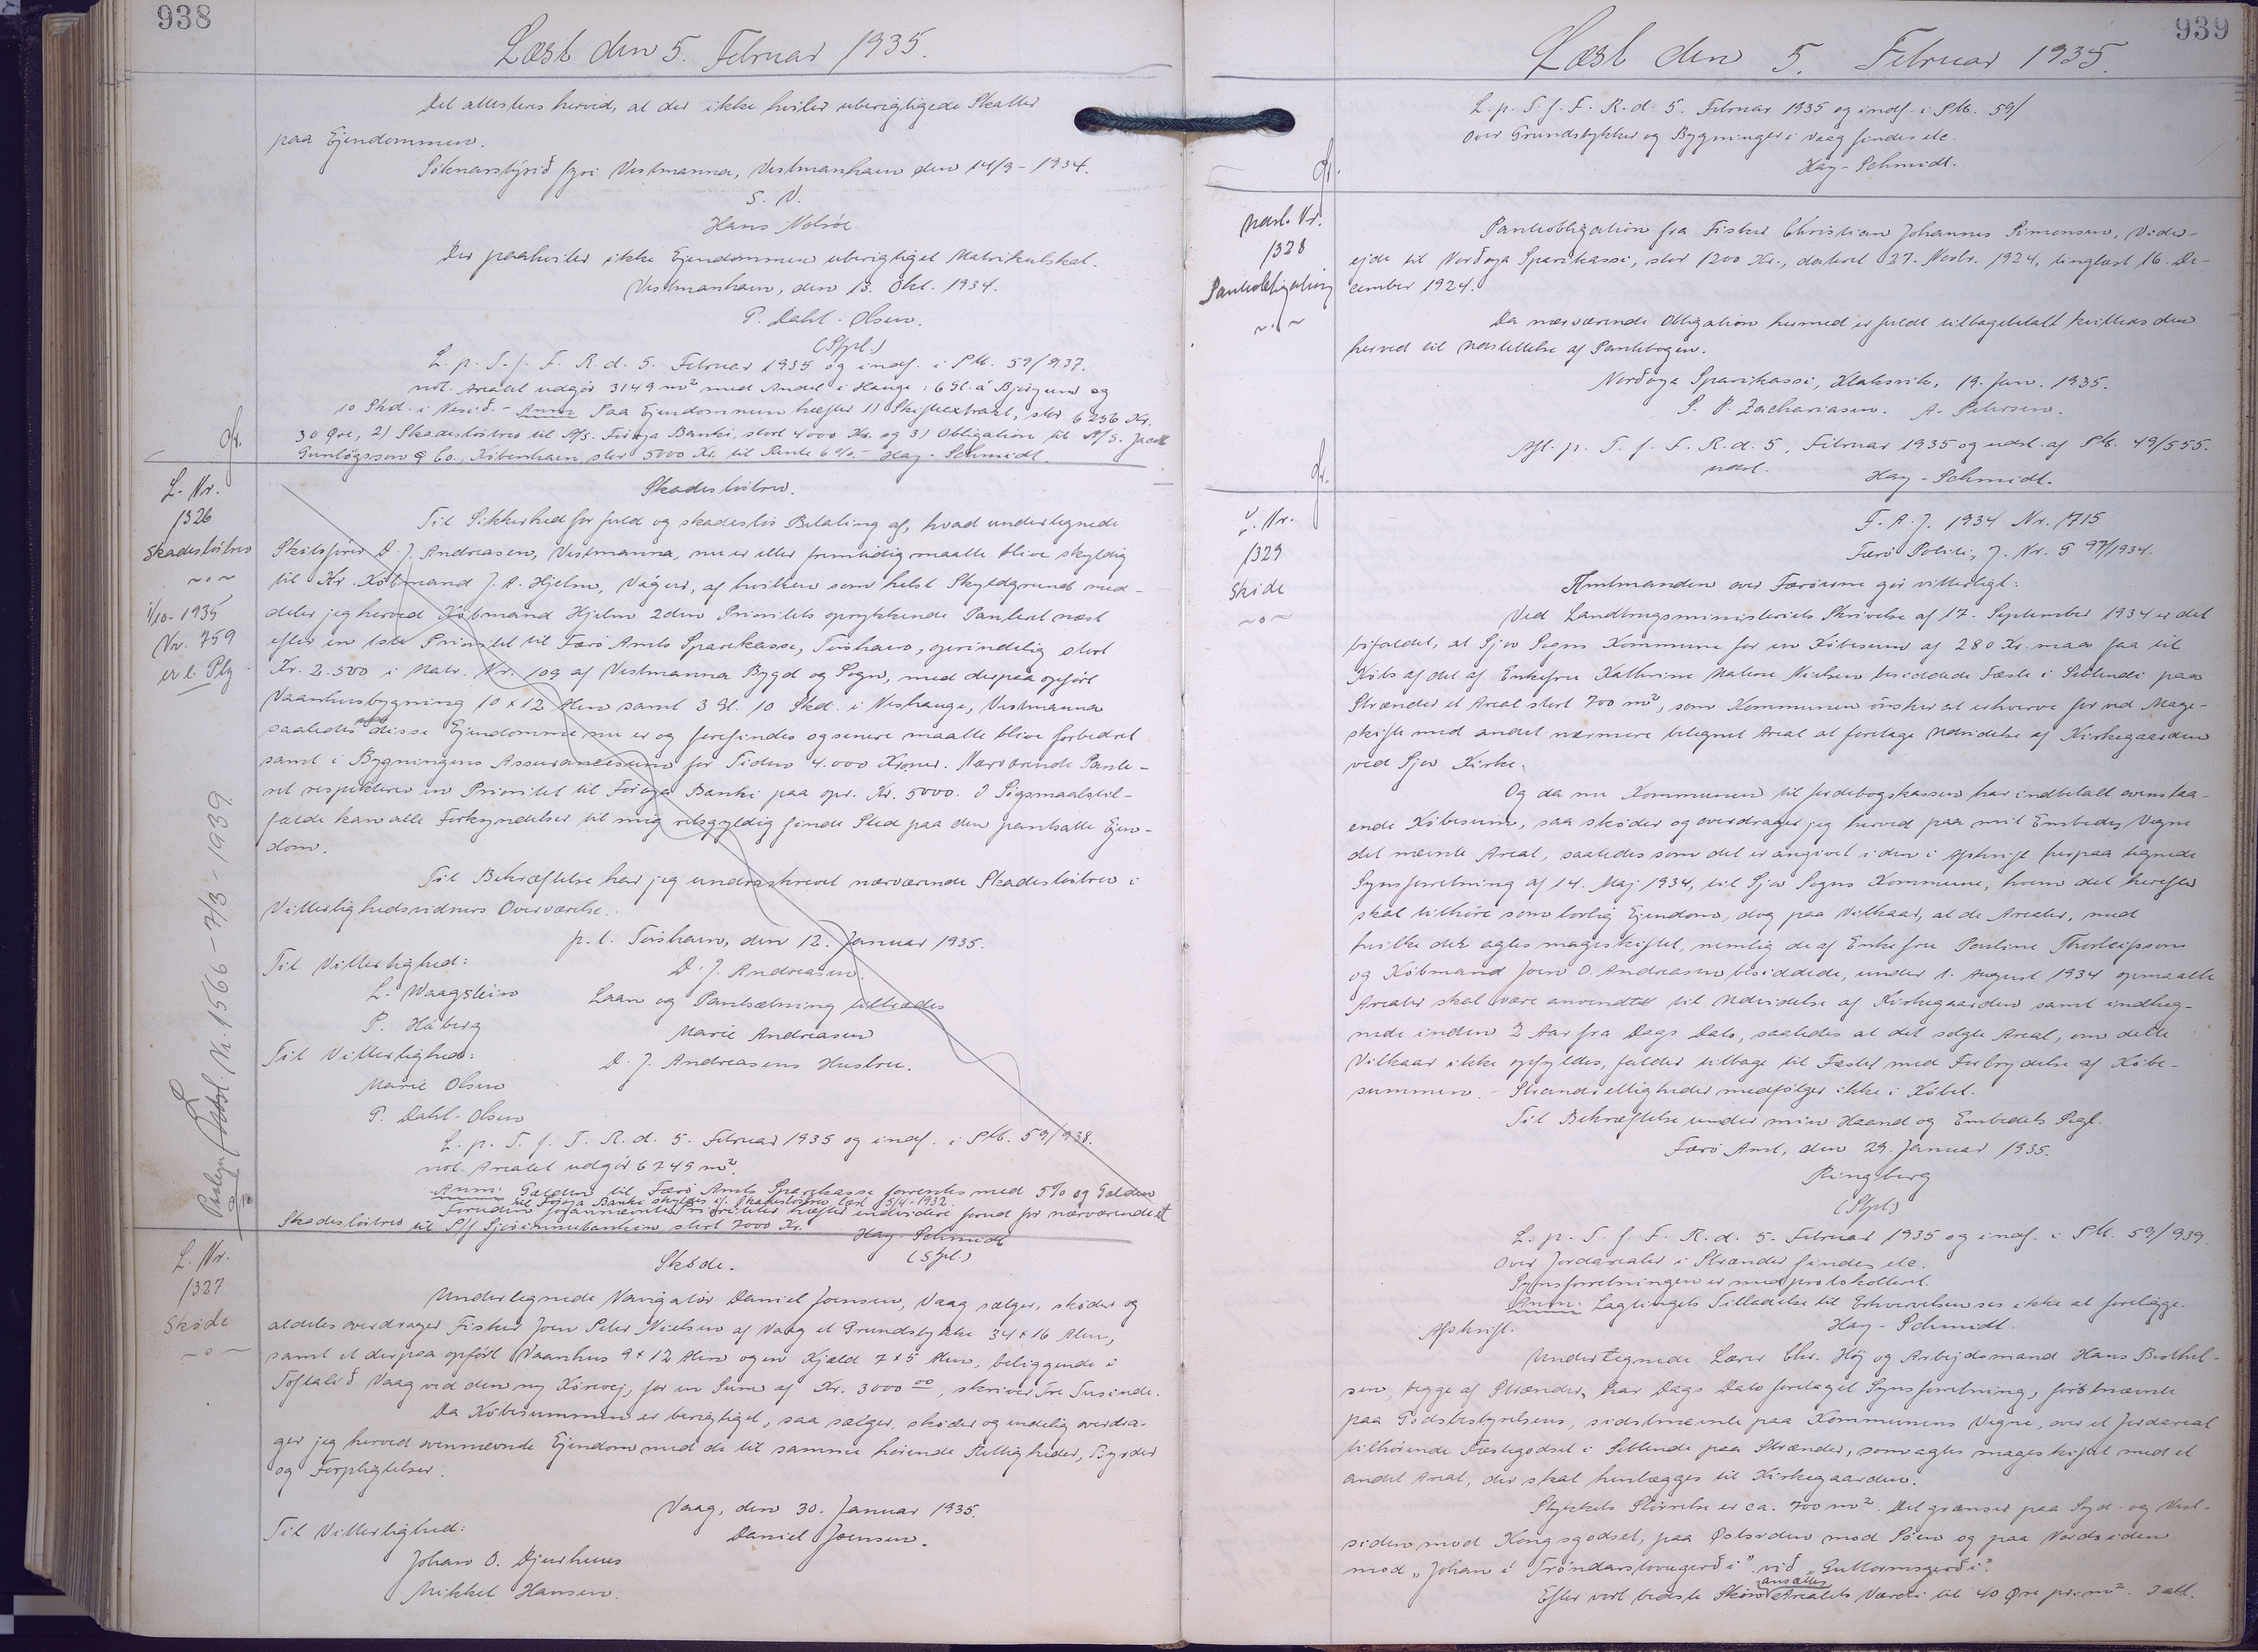 938
Læst den 5. Februar 1935.
Det attesteres herved, at der ikke hviler uberigtigede Skatter
paa Ejendommen.
Sóknarstýrið fyri Vestmanna, Vestmanhavn den 14/9 - 1934.
S. V.
Hans Nolsöe
Der paahviler ikke Ejendommen uberigtiget Matrikulskat.
Vestmanhavn, den 13. Okt. 1934.
P. Dahl-Olsen.
(Stpl.)
L. p. T. f. F. R. d. 5. Februar 1935 og indf. i Ptb. 59/937.
not. Arealet udgör 3149 m² med Andel i Hauge: 6 Gl. á Bjergum og
10 Skd. i Nesið. - Anm Paa Ejendommen hæfter 1) Skifteextrakt, stor 6256 Kr.
30 Øre, 2) Skadeslösbrev til A/S. Föroya Banki, stort 4000 Kr. og 3) Obligation til A/S. Jacob
Gunlögsson & Co., Köbenhavn, stor 5000 Kr. til Rente 6 %. - Hay-Schmidt.
Gr.
L. Nr.
1326
Skadeslösbrev
~ o ~
1/10-1935
Nr. 759
er l. Ptg.
Skadeslösbrev.
Til Sikkerhed for fuld og skadeslös Betaling af, hvad undertegnede
Skibsförer D. J. Andreasen, Vestmanna, nu er eller fremtidig maatte blive skyldig
til Hr. Köbmand J. A. Hjelm, Vágur, af hvilken som helst Skyldgrund med-
deler jeg herved Köbmand Hjelm 2den Prioritets oprykkende Panteret næst
efter en 1ste Prioritet til Færö Amts Sparekasse, Torshavn, oprindelig stort
Kr. 2.500 i Matr. Nr. 109 af Vestmanna Bygd og Sogn, med derpaa opfört
Vaanhusbygning 10 x 12 Alen samt 3 Gl. 10 Skd. i Neshauge, Vestmanna
saaledes som disse Ejendomme nu er og forefindes og senere maatte blive forbedret
samt i Bygningens Assurancesum for Tiden 4.000 Kroner. Nærværende Pante-
ret respekterer en Prioritet til Föroya Banki paa opr. Kr. 5000. I Sögsmaalstil-
fælde kan alle Forkyndelser til mig retsgyldig finde Sted paa den pantsatte Ejen-
dom.
Til Bekræftelse har jeg underskrevet nærværende Skadeslösbrev i
Vitterlighedsvidners Overværelse.
p.t. Torshavn, den 12. Januar 1935.
Til Vitterlighed: D. J. Andreasen.
L. Waagstein Laan og Pantsætning tiltrædes
P. Háberg Marie Andreasen
Til Vitterlighed: D. J. Andreasens Hustru.
Marie Olsen
P. Dahl-Olsen
L. p. T. f. F. R. d. 5. Februar 1935 og indf. i Ptb. 59/938.
not. Arealet udgör 6749 m².
Anm: Gælden til Færö Amts Sparekasse forrentes med 5% og Gælden
til Föroya Banki skyldes if. Skadeslösbrev læst 5/4-1932.
Foruden forannævnte Prioriteter hæfter endvidere forud for nærværende et
Skadeslösbrev til P/f Sjóvinnubankin stort 7000 Kr. Hay-Schmidt
(Stpl.)
Nr. 1566 - 7/3 - 1939
L. Nr.
1327
Sköde
~ o ~
Sköde.
Undertegnede Navigatör Daniel Joensen, Vaag sælger, sköder og
aldeles overdrager Fisker Joen Peter Nielsen af Vaag et Grundstykke 34 x 16 Alen,
samt et derpaa opfört Vaanhus 9 x 12 Alen og en Kjæld 7 x 5 Alen, beliggende i
Toftalið Vaag ved den ny Körevej, for en Sum af Kr. 3000 00, skriver Tre Tusinde.
Da Köbesummen er berigtiget, saa sælger, sköder og endelig overdra-
ger jeg herved ovennævnte Ejendom med de til samme höiende Rettigheder, Byrder
og Forpligtelser.
Vaag, den 30. Januar 1935.
Til Vitterlighed: Daniel Joensen.
Johan O. Djurhuus
Mikkel Hansen.
939
Læst den 5. Februar 1935.
L. p. T. f. F. R. d. 5. Februar 1935 og indf. i Ptb. 59/
Over Grundstykker og Bygninger i Vaag findes ele.
Hay-Schmidt.
Gr.
Udsl. Nr.
1328
Pantobligation
~ . ~
Pantobligation fra Fisker Christian Johannes Simonsen, Vider-
ejde til Norðoya Sparikassi, stor 1200 Kr., dateret 27. Novbr. 1924, tinglæst 16. De-
cember 1924.
Da nærværende Obligation hermed er fuldt tilbagebetalt kvitteres den
herved til Udslettelse af Pantebogen.
Norðoya Sparikassi, Klaksvik, 19. Jan. 1935.
P. P. Zachariasen. A. Petersen.
Afl. p. T. f. F. R. d. 5. Februar 1935 og udsl. af Ptb. 49/555.
udsl. Hay-Schmidt.
Gr.
L. Nr.
1329
Sköde
~ o ~
F. A. J. 1934 Nr. 1715
Færö Politi, J. Nr. G 97/1934.
Amtmanden over Færöerne gör vitterligt:
Ved Landbrugsministeriets Skrivelse af 17. September 1934 er det
bifaldet, at Sjov Sogns Kommune for en Köbesum af 280 Kr. maa faa til
Köbs af det af Enkefru Kathrine Malene Nielsen besiddede Fæste i Giblendi paa
Strænder et Areal stort 700 m², som Kommunen önsker at erhverve for ved Mage-
skifte med andet nærmere belegnet Areal at foretage Udvidelse af Kirkegaarden
ved Sjov Kirke.
Og da nu Kommunen til Jordebogskassen har indbetalt ovenstaa-
ende Köbesum, saa sköder og overdrager jeg herved paa mit Embedes Vegne
det nævnte Areal, saaledes som det er angivet i den i Afskrift herpaa tegnede
Synsforretning af 14. Maj 1934, til Sjov Sogns Kommune, hvem det herefter
skal tilhöre som lovlig Ejendom, dog paa Vilkaar, at de Arealer, med
hvilke det agtes mageskiftet, nemlig de af Enkefru Pouline Thorleifsson
og Köbmand Joen O. Andreasen besiddede, under 1. August 1934 opmaalte
Arealer skal være anvendt til Udvidelse af Kirkegaarden samt indheg-
nede inden 2 Aar fra Dags Dato, saaledes at det solgte Areal, om dette
Vilkaar ikke opfyldes, falder tilbage til Fæstet med Forbrydelse af Köbe-
summen. - Strandrettigheder medfölger ikke i Köbet.
Til Bekræftelse under min Haand og Embedets Segl.
Færö Amt, den 29. Januar 1935.
Ringberg
(Stpl)
L. p. T. f. F. R. d. 5. Februar 1935 og indf. i Ptb. 59/939.
Over Jordarealer i Strænder findes ele.
Synsforretningen er medprotokolleret.
Anm: Lagtingets Tilladelse til Erhvervelsen ses ikke at foreligge.
Afskrift. Hay-Schmidt.
Undertegnede Lærer Chr. Höj og Arbejdsmand Hans Berthel-
sen, begge af Strænder, har Dags Dato foretaget Synsforretning, förstnævnte
paa Godsbestyrelsens, sidstnævnte paa Kommunens Vegne, over et Jordareal
tilhörende Fæstegodset i Giblende paa Strænder, som agtes mageskiftet med et
andet Areal, der skal henlægges til Kirkegaarden.
Stykkets Störrelse er ca. 700 m². Det grænser paa Syd- og Vest-
siden mod Kongsgodset, paa Østsiden mod Söen og paa Nordsiden
mod „Johan i Tröndarstovugerði" við „Guttormsgerði".
Efter vort bedste Skön ansættes Arealets Værdi til 40 Øre pr. m². Ialt.